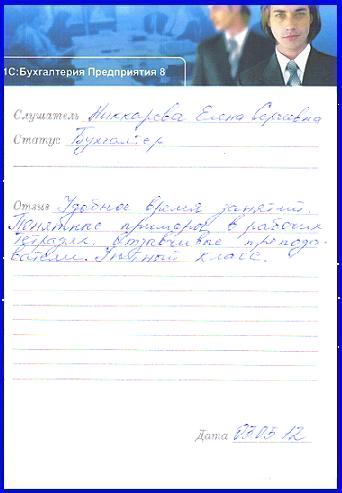 1С:Бухгалтерия Предприятия 8
Слушатель Елена Сергеевна
Статус Бухгалтер
Отзыв Удобное время занятий.
Понятные примеры в рабочих
тетрадях. Отзывчивые препода-
ватели. Уютный класс.
Дата 03.03.12